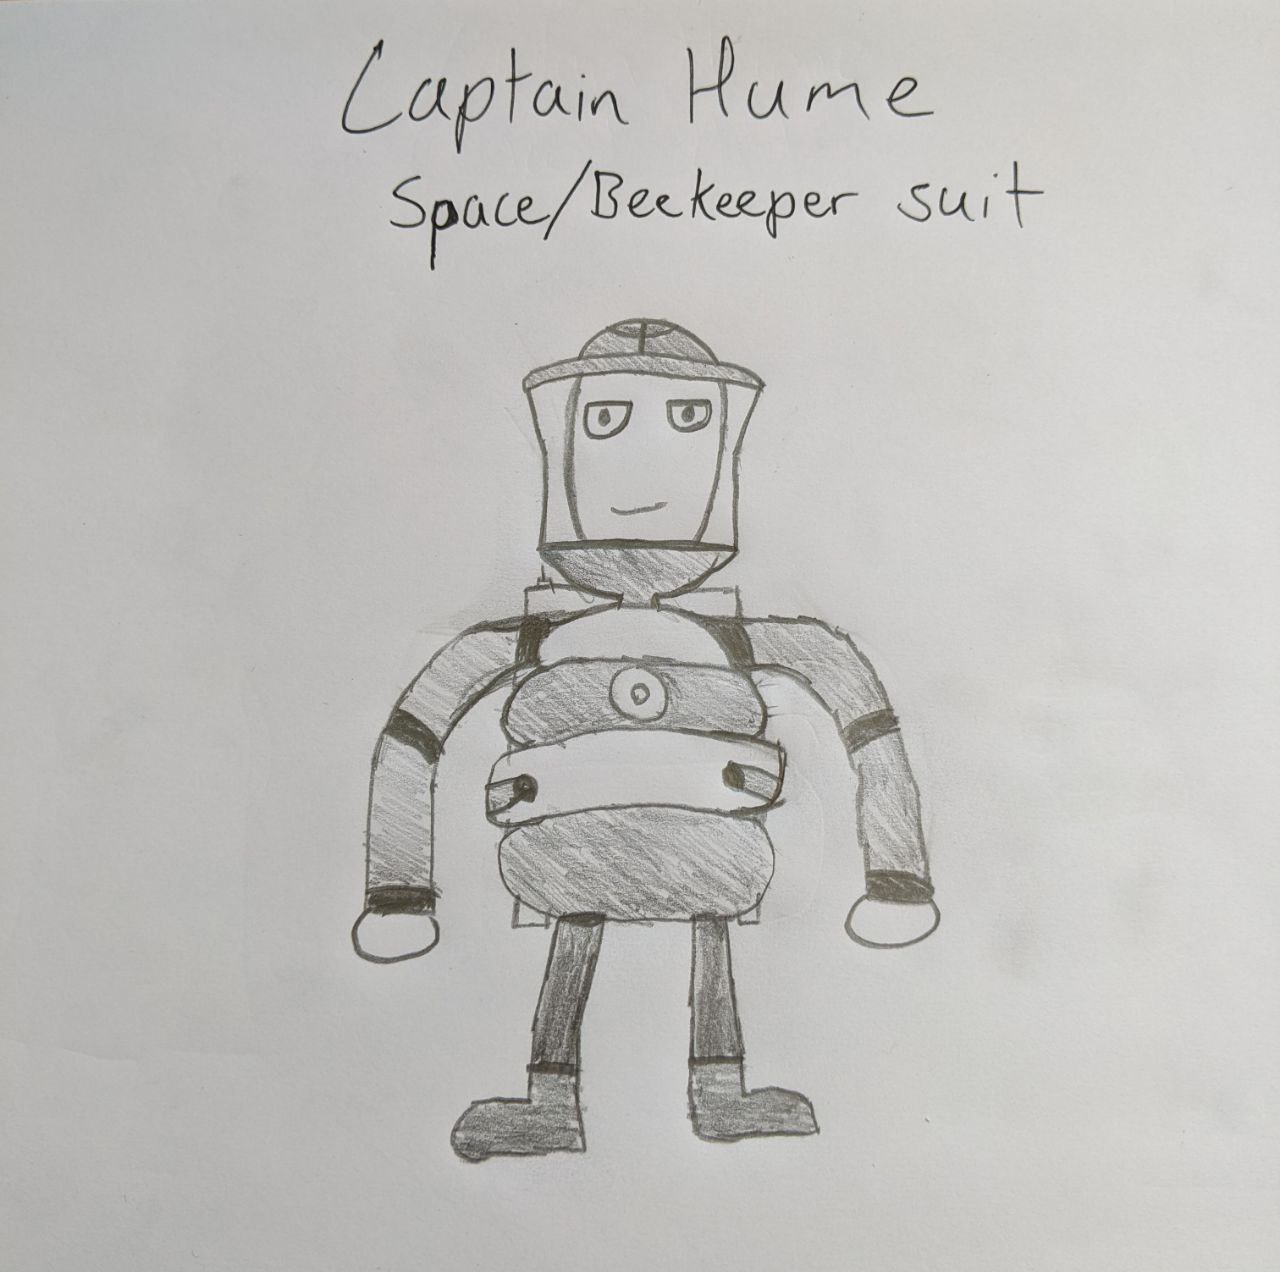 Captain Hume
Space/Beekeeper suit